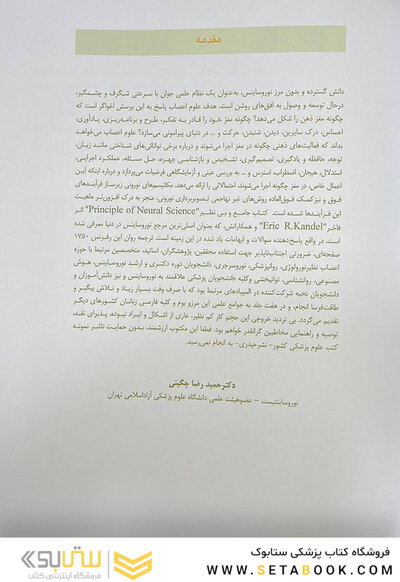 مقدمه
دانش گسترده و بدون مرز نوروساینس، به‌عنوان یک نظام علمی جوان با سرعتی شگرف و چشمگیر،
درحال توسعه و وصول به افق‌های روشن است. هدف علوم اعصاب پاسخ به این پرسش اغواگر است که
چگونه مغز ذهن را شکل می‌دهد؟ چگونه مغز خود را قادر به تفکر، طرح و برنامه‌ریزی، یادآوری،
احساس، درک سایرین، دیدن، شنیدن، حرکت و ... در دنیای پیرامونی می‌سازد؟ علوم اعصاب می‌خواهد
بداند که فعالیت‌های ذهنی چگونه در مغز اجرا می‌شوند و درباره برخی توانائی‌های شناختی مانند زبان،
توجه، حافظه و یادگیری، تصمیم‌گیری، تشخیص و بازشناسی چهره، حل مسئله، عملکرد اجرایی،
استدلال، هیجان، اضطراب، استرس و ... به بررسی عینی و آزمایشگاهی فرضیات می‌پردازد و درباره اینکه این
اعمال خاص، در مغز چگونه اجرا می‌شوند، احتمالاتی را ارائه می‌دهد. مکانیسم‌های نورونی زیرساز فرآیندهای
فوق و نیز کمک فوق‌العاده روش‌های غیر تهاجمی تصویربرداری نورونی، منجر به درک افزون‌تر ماهیت
این فرآیندها شده است. کتاب جامع و بی نظیر "Principle of Neural Science" اثر
آقای "Eric R.Kandel" و همکارانش، که بعنوان اصلی‌ترین مرجع نوروساینس در دنیا معرفی شده
است، در واقع پاسخ‌دهنده سوالات و ابهامات یاد شده در این زمینه است. ترجمه روان این رفرنس ۱۷۵۰
صفحه‌ای، ضرورتی اجتناب‌ناپذیر جهت استفاده محققین، پژوهشگران، اساتید، متخصصین مرتبط با حوزه
اعصاب نظیر نورولوژی، روانپزشکی، نوروسرجری، دانشجویان دوره دکتری و ارشد نوروساینس، هوش
مصنوعی، روانشناسی، توانبخشی وکلیه دانشجویان پزشکی علاقمند به نوروساینس و نیز دانش‌آموزان و
دانشجویان نخبه شرکت‌کننده در المپیادهای مرتبط بود که با صرف وقت بسیار زیاد و تلاش پیگیر و
طاقت‌فرسا انجام، و در هفت جلد به جوامع علمی این مرزو بوم و کلیه فارسی زبانان کشورهای دیگر
تقدیم می‌گردد. بی تردید خروجی این حجم کار کم نظیر، عاری از اشکال و ایراد نبوده، پذیرای نقد،
توصیه و راهنمایی مخاطبین گرانقدر خواهم بود. قطعا این مکتوب ارزشمند، بدون حمایت ناشر نمونه
کتب علوم پزشکی کشور- نشرحیدری- به انجام نمی‌رسید.
دکترحمید رضا چگینی
نوروساینتیست – عضوهیئت علمی دانشگاه علوم پزشکی آزاداسلامی تهران
ستابوک
فروشگاه اینترنتی کتاب
فروشگاه کتاب پزشکی ستابوک
WWW.SETABOOK.COM